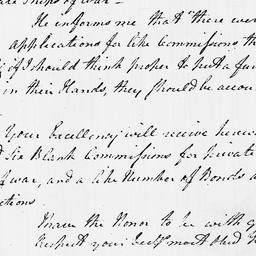 ships of war —
He informs me that "there were
applications for like Commissions, th
if I should think proper to put a fur
in their Hands, they should be accou
Your Excellency will receive herew
Six Blank Commissions for private
of war, and a like Number of Bonds a
ctions.
I have the Honor to be with g
Respect, your Excy's most Obed